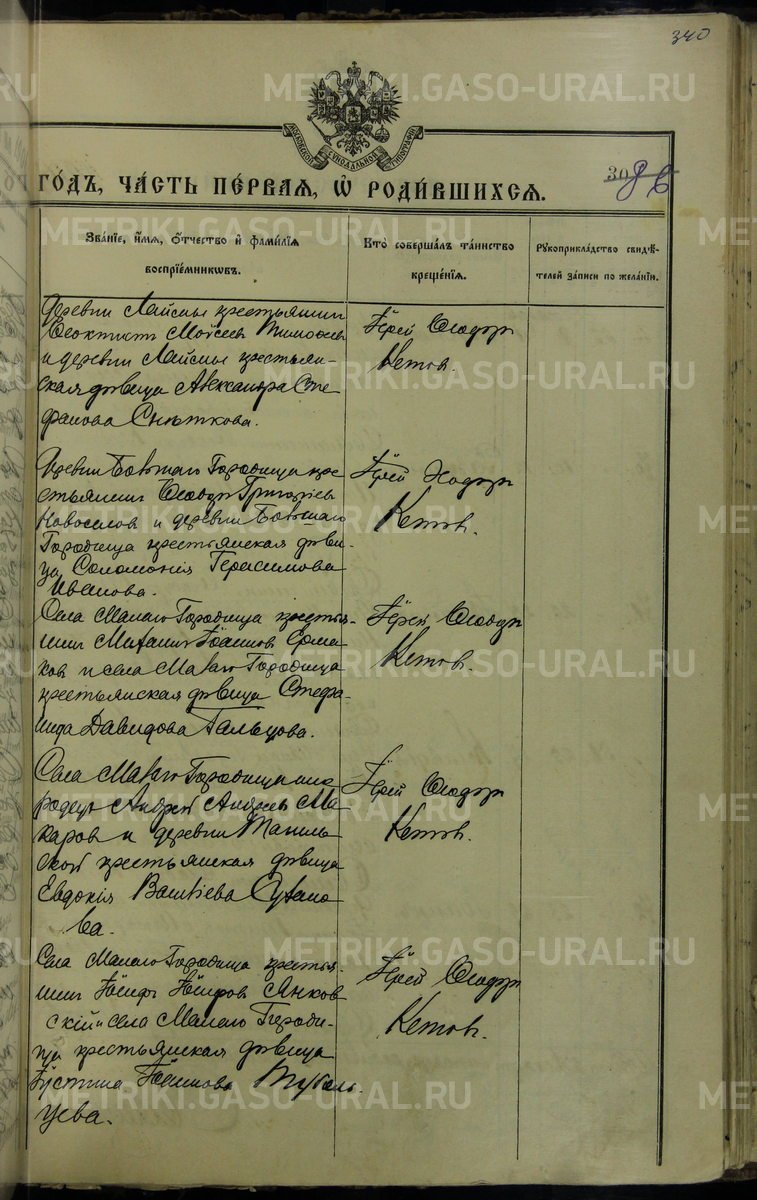 340
МОСКОВСКОЙ СѴНОДАЛЬНОЙ ТИПОГРАФІИ
308 в
ГОДЪ, ЧАСТЬ ПЕРВАЯ, Ѡ РОДИВШИХСЯ.
Званїе, имя, отчество и фамилїя
воспрїемниковъ.
Кто совершалъ таинство
крещенїя.
Рукоприкладство свидѣ-
телей записи по желанїю.
Деревни крестьянинъ
Ѳеоктистъ Моѵсеевъ Тимоѳеевъ
и деревни крестьян-
ская дѣвица Александра Сте
фанова Сыѣткова.
Іерей Ѳеодоръ
Кетовъ.
Деревни Большаго Городища кре
стьянинъ Ѳеодоръ Григоріевъ
Новоселовъ и деревни Большаго
Городища крестьянская дѣви-
ца Соломонія Герасимова
Иванова.
Іерей Ѳеодоръ
Кетовъ.
Села Малаго Городища крестья-
нинъ Михаилъ Іоанновъ Ерма
ковъ и села Малаго Городища
крестьянская дѣвица Стефа-
нида Давидова Гальцова.
Іерей Ѳеодоръ
Кетовъ.
Села Малаго Городища ино
родецъ Андрей Андреевъ Ма
каровъ и деревни
крестьянская дѣвица
Евдокія Василіева
ва.
Іерей Ѳеодоръ
Кетовъ.
Села Малаго Городища крестья-
нинъ Іосифъ Іосифовъ Янков
скій и села Малаго Городи-
ща крестьянская дѣвица
Іустина
цева.
Іерей Ѳеодоръ
Кетовъ.
METRIKI.GASO-URAL.RU